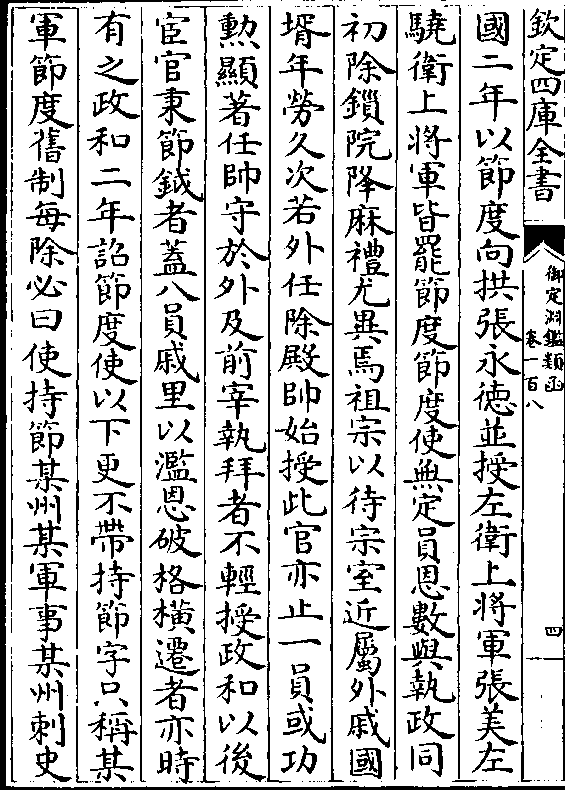 欽定四庫全書
御定淵鑑類函
卷一百八
四
國二年以節度向拱張永德並授左衛上將軍張美左
驍衛上將軍皆罷節度節度使無定員恩數與執政同
初除鎖院降麻禮尤異焉祖宗以待宗室近屬外戚國
壻年勞久次若外任除殿帥始授此官亦止一員或功
勲顯著任帥守於外及前宰執拜者不輕授政和以後
宦官秉節鉞者蓋八員戚里以濫恩破格橫遷者亦時
有之政和二年詔節度使以下更不帶持節字只稱某
軍節度舊制每除必曰使持節某州某軍事某州刺史